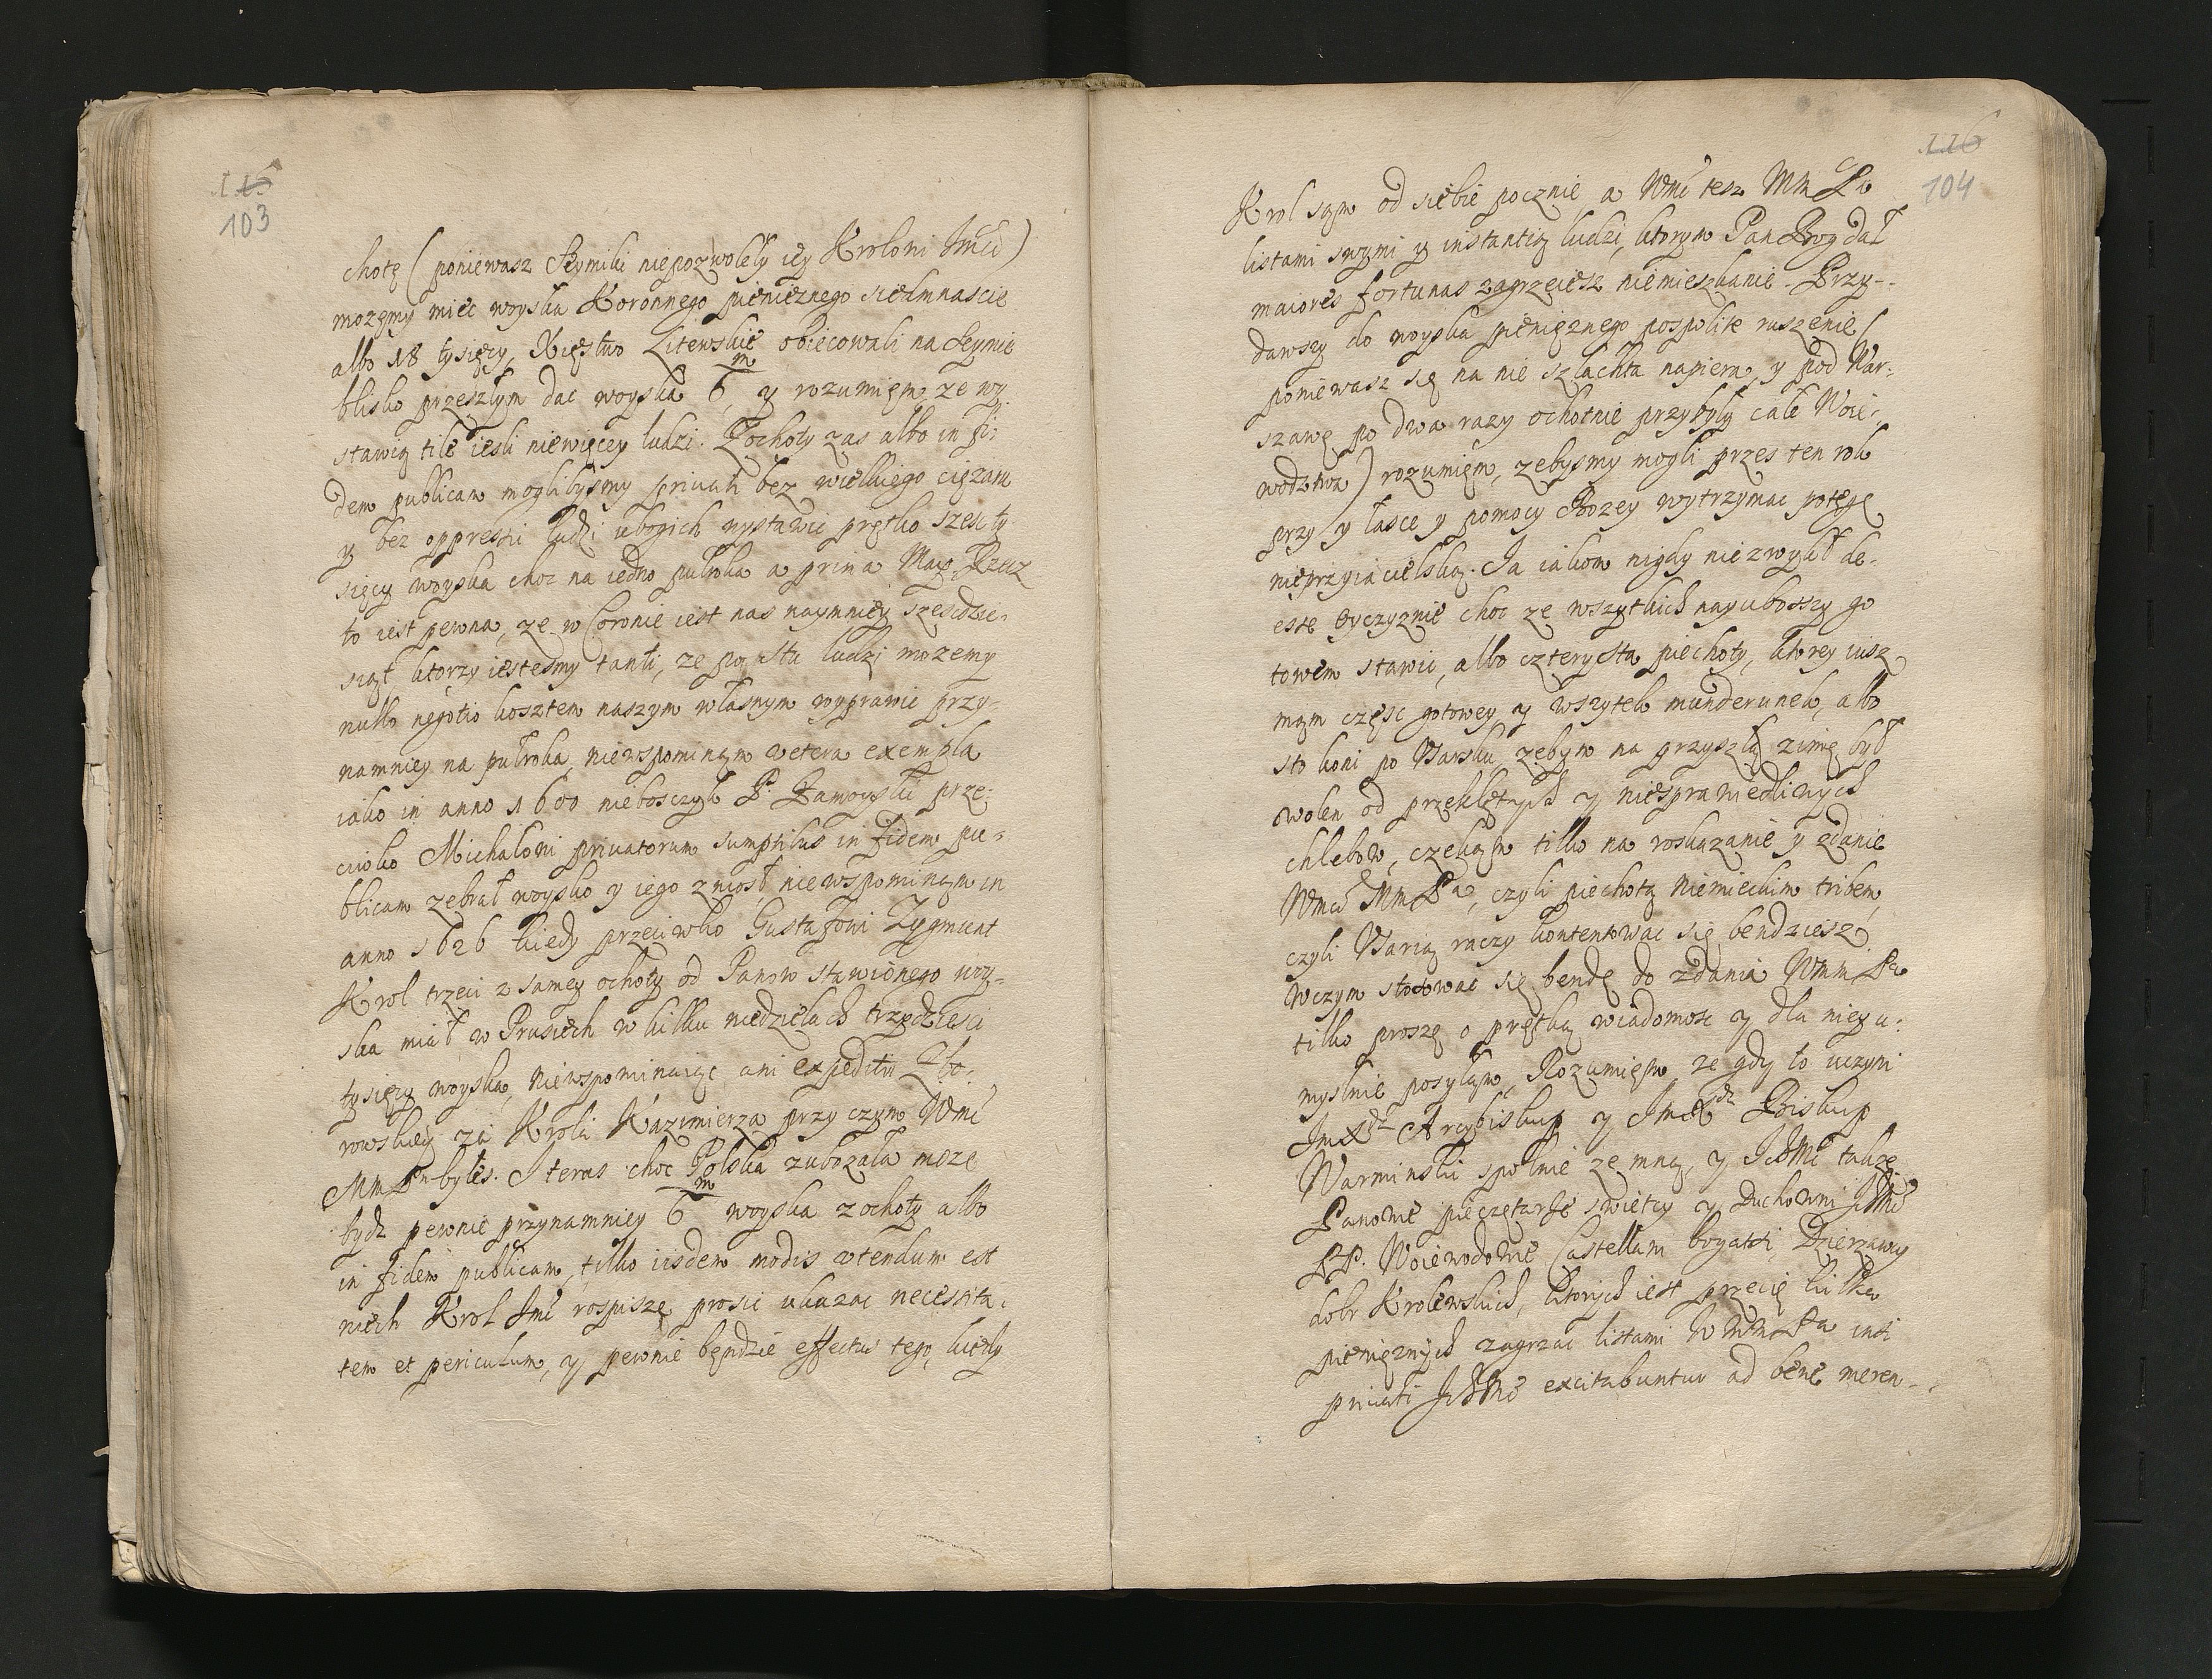 115
103
chotę (poniewasz Seymiki niepozwoleły iey Krolowi Jmci)
mozęmy miec woyska Koronnego pienieznego siedmnascie
albo 18 tysięcy, Xięstwo Litewskie obiecowali na Seymie
blisko przeszłym dac woyska 6/m, y rozumięm ze wy
stawią tile iesli niewięcey ludzi. Z ochoty zas albo in fi:
dem publicam moglibysmy privati bez wielkiego cięzaru
y bez oppressii ludzi ubogich wystawic prętko szesc ty
sięcy woyska choc na iedno pułroka a prima Maÿ, Rzecz
to iest pewna, ze w Coronie iest nas naymniey szescdzie-
siąt, ktorzy iestesmy tanti, ze po stu ludzi mozemy
nullo negotio kosztem naszym własnym wyprawic przy-
namniey na pułroka, niewspominąm vetera exempla
iako in anno 1600 nieboszczyk P. Zamoyski prze-
ciwko Michałowi privatorum sumptibus in fidem pu-
blicam zebrał woysko y iego zniosł, niewspominąm in
anno 1626 kiedy przeciwko Gustafowi Zygmunt
Krol trzeci z samey ochoty od Panow stawionego woy-
ska miał w Prusiech w kilku niedzielach trzydziesci
tysięcy woyska, niewspominaiąc ani expeditii Zbo-
rowskiey za Krola Kazimierza przy czym Wmc
MmPn byłes. I teras choc Polska zubozała moze
bydz pewnie przynamniey 6/m woyska z ochoty albo
in fidem publicam, tilko iisdem modis utendum est
niech Krol Jmc rospisze, prosic ukazac necessita-
tem et periculum, y pewnie bęndzie effectus tego, kiedy
116
104
Krol sąm od siebie pocznie, a Wmc tesz Mm Pa
listami swymi y instantią ludzi, ktorym Pan Bog dał
maiores fortunas zagrzeiesz niemieszkanie. Przy-
dawszy do woyska pienięznego pospolite ruszenie (
poniewasz się na nie szlachta napiera, y pod War-
szawę po dwa razy ochotnie przybyły całe Woie-
wodztwa) rozumięm, zebysmy mogli przes ten rok
przy y łasce y pomocy Bozey wytrzymac potęgę
nieprzyiacielską. Ja iakom nigdy niezwykł de-
esse Oyczyznie choc ze wszytkich nayubosszy go
towem stawic, albo czterysta piechoty, ktorey iusz
mąm częsc gotowey y wszytek munderunek, albo
sto koni po Usarsku, zebym na przyszłą zimę był
wolen od przeklętych y niesprawiedliwych
chlebow, czekąm tilko na roskazanie y zdanie
Wmci MmPa, czyli piechotą niemieckim tribem,
czyli Usarią raczy kontentowac się bendziesz,
Wczym stosowac się bendę do zdania WmmPa
tilko proszę o prętką wiadomosc y dla niey u-
myslnie posyłąm, Rozumięm ze gdy to uczyni
JmXdz Arcybiskup y JmXdz Biskup
Warminski spolnie ze mną, y JchMc takze
Panowie pieczętarze swietcy y Duchowni JchMc
PP. Woiewodowie Castellani bogatsi, Dzierzawcy
dobr Krolewskich, ktorych iest przecię kilka
pienięznych zagrzac listami WmmPa insi
privati JchMc excitabuntur ad bene meren-